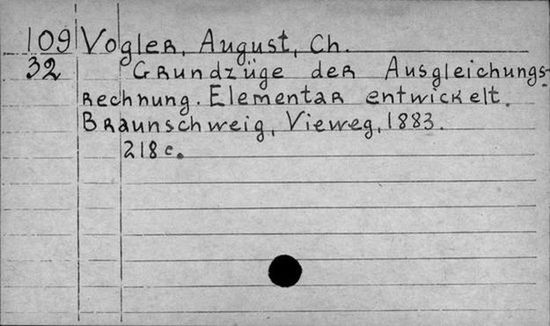 109 Vogler, August, Ch.
32 Grundzüge der Ausgleichungs-
rechnung. Elementar entwickelt.
Braunschweig, Vieweg, 1883.
218 c.